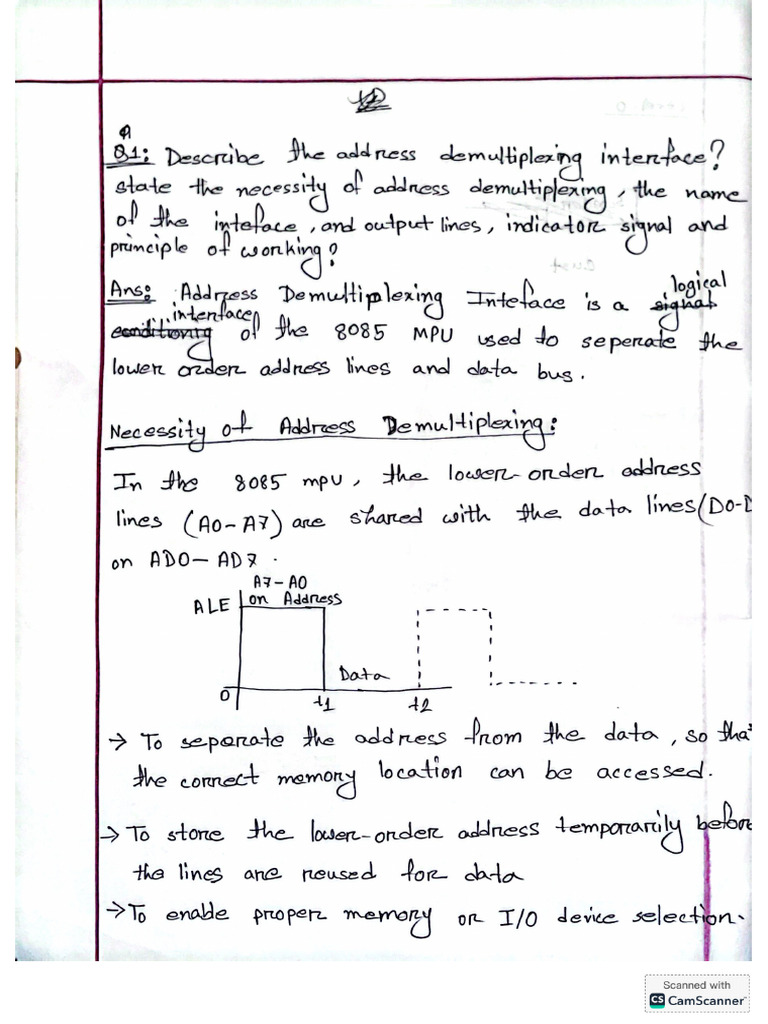 Q1: Describe the address demultiplexing interface?
state the necessity of address demultiplexing, the name
of the inteface, and output lines, indicator signal and
principle of working?
Ans: Address Demultiplexing Inteface is a logical
interface of the 8085 MPU used to seperate the
lower order address lines and data bus.
Necessity of Address Demultiplexing:
In the 8085 mpu, the lower-order address
lines (A0-A7) are shared with the data lines (D0-D
on AD0-AD7.
A7-A0
ALE on Address
Data
0 t1 t2
→ To separate the address from the data, so that
the correct memory location can be accessed.
→ To store the lower-order address temporarily before
the lines are reused for data
→ To enable proper memory or I/O device selection.
Scanned with
CS CamScanner